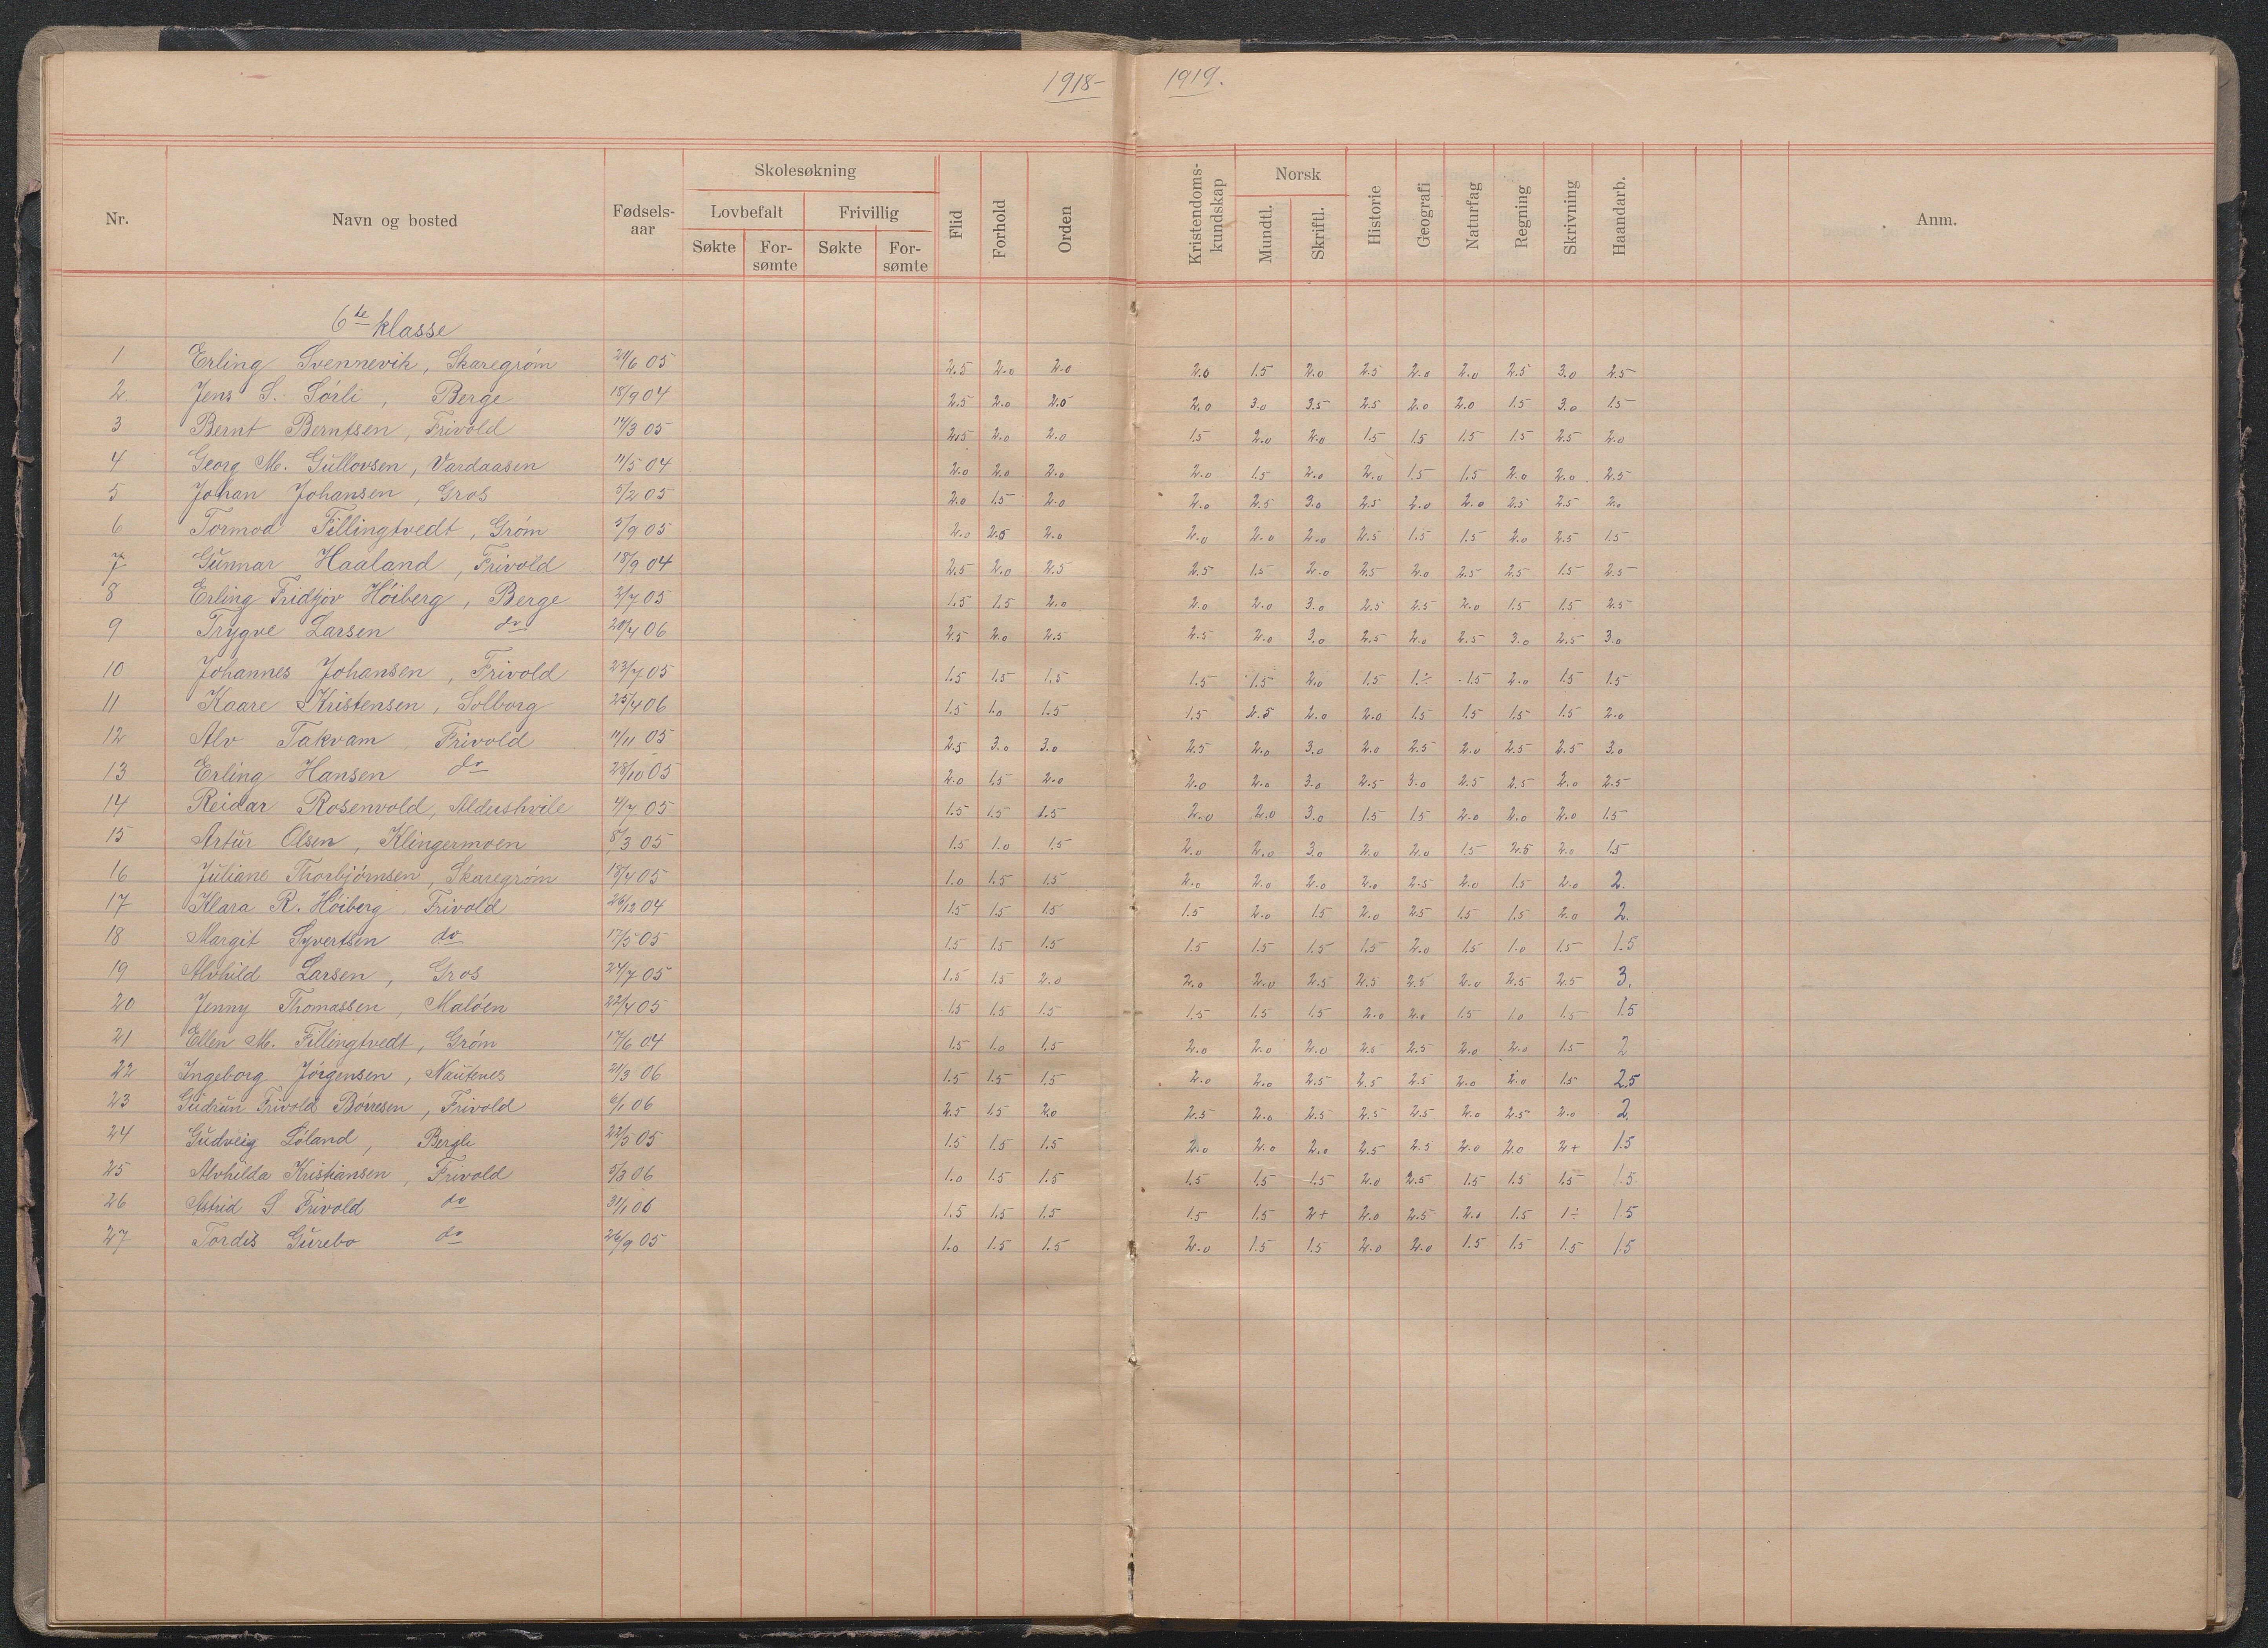 1918– 1919.
Nr. Navn og bosted Fødsels-aar Skolesøkning Lovbefalt Søkte For-sømte Frivillig Søkte For-sømte Flid Forhold Orden Kristendoms-kundskap Norsk Mundtl. Skriftl. Historie Geografi Naturfag Regning Skrivning Haandarb. Anm.
6te klasse
1 Erling Svennevik, Skaregrøm 24/6 05 2.5 2.0 2.0 2.0 1.5 2.0 2.5 2.0 2.0 2.5 3.0 2.5
2 Jens S. Sørli, Berge 18/9 04 2.5 2.0 2.0 2.0 3.0 3.5 2.5 2.0 2.0 1.5 3.0 1.5
3 Bernt Berntsen, Frivold 14/3 05 2.5 2.0 2.0 1.5 2.0 2.0 1.5 1.5 1.5 1.5 2.5 2.0
4 Georg M. Gullovsen, Vardaasen 11/5 04 2.0 2.0 2.0 2.0 1.5 2.0 2.0 1.5 1.5 2.0 2.0 2.5
5 Johan Johansen, Gros 5/2 05 2.0 1.5 2.0 2.0 2.5 3.0 2.5 2.0 2.0 2.5 2.5 2.0
6 Tormod Fillingtvedt, Grøm 5/9 05 2.0 2.5 2.0 2.0 2.0 2.0 2.5 1.5 1.5 2.0 2.5 1.5
7 Gunnar Haaland, Frivold 18/9 04 2.5 2.0 2.5 2.5 1.5 2.0 2.5 2.0 2.5 2.5 1.5 2.5
8 Erling Fridtjov Höiberg, Berge 2/7 05 1.5 1.5 2.0 2.0 2.0 3.0 2.5 2.5 2.0 1.5 1.5 2.5
9 Trygve Larsen do 20/4 06 2.5 2.0 2.5 2.5 2.0 3.0 2.5 2.0 2.5 3.0 2.5 3.0
10 Johannes Johansen, Frivold 23/7 05 1.5 1.5 1.5 1.5 1.5 2.0 1.5 1÷ 1.5 2.0 1.5 1.5
11 Kaare Kristensen, Solborg 25/4 06 1.5 1.0 1.5 1.5 2.5 2.0 2.0 1.5 1.5 1.5 1.5 2.0
12 Alv Takvam, Frivold 11/11 05 2.5 3.0 3.0 2.5 2.0 3.0 2.0 2.5 2.0 2.5 2.5 3.0
13 Erling Hansen do 28/10 05 2.0 1.5 2.0 2.0 2.0 3.0 2.5 3.0 2.5 2.5 2.0 2.5
14 Reidar Rosenvold, Aldershvile 4/7 05 1.5 1.5 1.5 2.0 2.0 3.0 1.5 1.5 2.0 2.0 2.0 1.5
15 Artur Olsen, Klingermoen 8/3 05 1.5 1.0 1.5 2.0 2.0 3.0 2.0 2.0 1.5 2.5 2.0 1.5
16 Juliane Thorbjørnsen, Skaregrøm 18/4 05 1.0 1.5 1.5 2.0 2.0 2.0 2.0 2.5 2.0 1.5 2.0 2.
17 Klara R. Höiberg, Frivold 26/12 04 1.5 1.5 1.5 1.5 2.0 1.5 2.0 2.5 1.5 1.5 2.0 2.
18 Margit Syvertsen do 17/5 05 1.5 1.5 1.5 1.5 1.5 1.5 1.5 2.0 1.5 1.0 1.5 1.5
19 Alvhild Larsen, Gros 24/7 05 1.5 1.5 2.0 2.0 2.0 2.5 2.5 2.5 2.0 2.5 2.5 3.
20 Jenny Thomassen, Malöen 22/4 05 1.5 1.5 1.5 1.5 1.5 1.5 2.0 2.0 1.5 1.0 1.5 1.5
21 Ellen M. Fillingtvedt, Grøm 17/6 04 1.5 1.0 1.5 2.0 2.0 2.0 2.5 2.5 2.0 2.0 1.5 2
22 Ingeborg Jörgensen, Nautenes 21/3 06 1.5 1.5 1.5 2.0 2.0 2.5 2.5 2.5 2.0 2.0 1.5 2.5
23 Gudrun Frivold Börresen, Frivold 6/1 06 2.5 1.5 2.0 2.5 2.0 2.5 2.5 2.5 2.0 2.5 2.0 2
24 Gudveig Löland, Bergli 22/5 05 1.5 1.5 1.5 2.0 2.0 2.0 2.5 2.5 2.0 2.0 2+ 1.5
25 Alvhilda Kristiansen, Frivold 5/3 06 1.0 1.5 1.5 1.5 1.5 1.5 2.0 2.5 1.5 1.5 1.5 1.5
26 Astrid S Frivold do 31/1 06 1.5 1.5 1.5 1.5 1.5 2+ 2.0 2.5 2.0 1.5 1÷ 1.5
27 Tordis Gurebo do 26/9 05 1.0 1.5 1.5 2.0 1.5 1.5 2.0 2.0 1.5 1.5 1.5 1.5